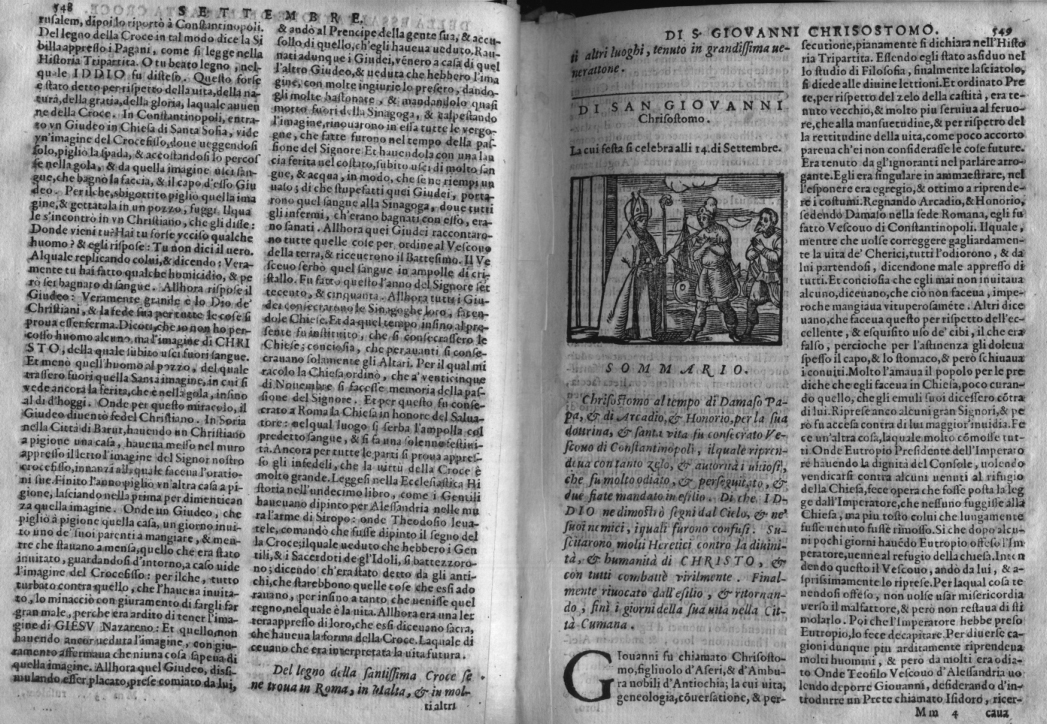 548 SETTEMBRE.
rusalem, dipoi lo riportò à Constantinopoli.
Del legno della Croce in tal modo dice la Si
billa appresso i Pagani, come si legge nella
Historia Tripartita. O tu beato legno, nel-
quale IDDIO fu disteso. Questo forse
è stato detto per rispetto della vita, della na-
tura, della gratia, della gloria, laquale auuen
ne della Croce. In Constantinopoli, entra-
to vn Giudeo in Chiesa di Santa Sofia, vide
vn'imagine del Crocefisso, doue ueggendosi
solo, piglio la spada, & accostandosi lo percos
se nella gola, & da quella imagine uscì san-
gue, che bagnò la faccia, & il capo d'esso Giu
deo. Per ilche, sbigottito piglio quella ima
gine, & gettatola in un pozzo, fuggi. Ilqua
le s'incontrò in vn Christiano, che gli disse:
Donde vieni tu? Hai tu forse vcciso qualche
huomo? & egli rispose: Tu non dici il uero.
Al quale replicando colui, & dicendo: Vera-
mente tu hai fatto qualche homicidio, & pe
rò sei bagnato di sangue. Allhora rispose il
Giudeo: Veramente grande è lo Dio de'
Christiani, & la fede sua per tutte le cose si
proua esser ferma. Dicoti, che io non ho per-
cosso huomo alcuno, ma l'imagine di CHRI
STO, della quale subito uscì fuori sangue.
Et menò quell'huomo al pozzo, del quale
trassero fuori quella Santa imagine, in cui si
vede ancora la ferita, che è nella gola, insino
al dì d'hoggi. Onde per questo miracolo, il
Giudeo diuentò fedel Christiano. In Soria
nella Città di Barut, hauendo un Christiano
a pigione una casa, haueua messo nel muro
appresso il letto l'imagine del Signor nostro
crocefisso, innanzi alla quale faceua l'oratio-
ni sue. Finito l'anno piglio vn'altra casa a pi-
gione, lasciando nella prima per dimentican
za quella imagine. Onde un Giudeo, che
piglio à pigione quella casa, un giorno inui-
tò uno de' suoi parenti a mangiare, & men-
tre che stauano a mensa, quello che era stato
inuitato, guardandosi d'intorno, a caso uide
l'imagine del Crocefisso: per ilche, tutto
turbato contra quello, che l'haueua inuita-
to, lo minacciò con giuramento di fargli far
gran male, perche era ardito di tener l'ima-
gine di GIESV Nazareno: Et quello, non
hauendo ancor ueduta l'imagine, con giu-
ramento affermaua che niuna cosa sapeua di
quella imagine. Allhora quel Giudeo, dissi-
mulando esser placato, prese comiato da lui,
& andò al Prencipe della gente sua, & accu-
sollo di quello, ch'egli haueua ueduto. Rau-
nati adunque i Giudei, vènero a casa di quel
l'altro Giudeo, & ueduta che hebbero l'ima
gine, con molte ingiurie lo presero, dando-
gli molte bastonate, & mandandolo quasi
morto fuori della Sinagoga, & calpestando
l'imagine, rinouarono in essa tutte le vergo-
gne, che fatte furono nel tempo della pas-
sione del Signore. Et hauendola con una lan
cia ferita nel costato, subito uscì di molto san
gue, & acqua, in modo, che se ne riempì un
uaso; di che stupefatti quei Giudei, porta-
rono quel sangue alla Sinagoga, doue tutti
gli infermi, ch'erano bagnati con esso, era-
no sanati. Allhora quei Giudei raccontaro-
no tutte quelle cose per ordine al Vescouo
della terra, & riceuerono il Battesimo. Il Ve
scouo serbò quel sangue in ampolle di cri-
stallo. Fu fatto questo l'anno del Signore set
tecento, & cinquanta. Allhora tutti i Giu-
dei consecrarono le Sinagoghe loro, facen-
dole Chiese. Et da quel tempo insino al pre-
sente fu instituito, che si consecrassero le
Chiese; conciosia, che per auanti si conse-
crauano solamente gli Altari. Per il qual mi
racolo la Chiesa ordinò, che a' venticinque
di Nouembre si facesse memoria della pas-
sione del Signore. Et per questo fu conse-
crato a Roma la Chiesa in honore del Salua-
tore: nel qual luogo si serba l'ampolla col
predetto sangue, & si fa una solenne festiui-
tà. Ancora per tutte le parti si proua appres-
so gli infedeli, che la uirtù della Croce è
molto grande. Leggesi nella Ecclesiastica Hi
storia nell'undecimo libro, come i Gentili
haueuano dipinto per Alessandria nelle mu
ra l'arme di Siropo: onde Theodosio leua-
tele, comandò che fusse dipinto il segno del
la Croce; ilquale ueduto che hebbero i Gen
tili, & i Sacerdoti de gl'Idoli, si battezzoro-
no; dicendo ch'era stato detto da gli anti-
chi, che starebbono quelle cose che essi ado
rauano, per insino a tanto, che uenisse quel
segno, nel quale è la uita. Allhora era una let
tera appresso di loro, che essi diceuano sacra,
che haueua la forma della Croce. Laquale di
ceuano che era interpretata la uita futura.
Del legno della santissima Croce se
ne troua in Roma, in Malta, & in mol-
ti altri
DI S. GIOVANNI CHRISOSTOMO. 549
ti altri luoghi, tenuto in grandissima ue-
neratione.
DI SAN GIOVANNI
Chrisostomo.
La cui festa si celebra alli 14. di Settembre.
SOMMARIO.
Chrisostomo al tempo di Damaso Pa-
pa, & di Arcadio, & Honorio, per la sua
dottrina, & santa vita fu consecrato Ve-
scouo di Constantinopoli, ilquale ripren-
di ua con tanto zelo, & autorità i uitiosi,
che fu molto odiato, & perseguitato, &
due fiate mandato in esilio. Di che ID-
DIO ne dimostrò segni dal Cielo, & ne'
suoi nemici, i quali furono confusi. Su-
scitarono molti Heretici contro la diuini
tà, & humanità di CHRISTO, &
con tutti combattè virilmente. Final-
mente riuocato dall'esilio, & ritornan-
do, finì i giorni della sua uita nella Cit-
tà Cumana.
Giouanni fu chiamato Chrisosto-
mo, figliuolo d'Aseri, & d'Ambu-
ra nobili d'Antiochia; la cui uita,
geneologia, cōuersatione, & per-
secutione, pianamente si dichiara nell'Histo
ria Tripartita. Essendo egli stato assiduo nel
lo studio di Filosofia, finalmente lasciatolo,
si diede alle diuine lettioni. Et ordinato Pre
te, per rispetto del zelo della castità, era te-
nuto vecchio, & molto piu seruiua al feruo-
re, che alla mansuetudine, & per rispetto del
la rettitudine della uita, come poco accorto
pareua ch'ei non considerasse le cose future.
Era tenuto da gl'ignoranti nel parlare arro-
gante. Egli era singulare in ammaestrare, nel
l'esponere era egregio, & ottimo a riprende-
re i costumi. Regnando Arcadio, & Honorio,
sedendo Damaso nella sede Romana, egli fu
fatto Vescouo di Constantinopoli. Ilquale,
mentre che uolse correggere gagliardamen-
te la uita de' Cherici, tutti l'odiorono, & da
lui partendosi, dicendone male appresso di
tutti. Et conciosia che egli mai non inuitaua
alcuno, diceuano, che ciò non faceua, impe-
roche mangiaua vituperosamēte. Altri dice
uano, che faceua questo per rispetto dell'ec-
cellente, & esquisito uso de' cibi, il che era
falso, percioche per l'astinenza gli doleua
spesso il capo, & lo stomaco, & però schiuaua
i conuiti. Molto l'amaua il popolo per le pre
diche che egli faceua in Chiesa, poco curan-
do quello, che gli emuli suoi dicessero cōtra
di lui. Riprese anco alcuni gran Signori, & pe
rò fu accesa contra di lui maggior inuidia. Fe
ce un'altra cosa, laquale molto cōmosse tut-
ti. Onde Eutropio Presidente dell'Imperato
re hauendo la dignità del Console, uolendo
vendicarsi contra alcuni uenuti al rifugio
della Chiesa, fece opera che fosse posta la leg
ge dall'Imperatore, che nessuno fuggisse alla
Chiesa, ma piu tosto colui che lungamente
fusse uenuto fusse rimosso. Si che dopo alcu-
ni pochi giorni hauēdo Eutropio offeso l'Im
peratore, uenne al refugio della chiesa. Inten
dendo questo il Vescouo, andò da lui, & a-
sprissimamente lo riprese. Per laqual cosa te
nendosi offeso, non uolse usar misericordia
verso il malfattore, & però non restaua di sti
molarlo. Poi che l'Imperatore hebbe preso
Eutropio, lo fece decapitare. Per diuerse ca-
gioni dunque piu arditamente riprendeua
molti huomini, & però da molti era odia-
to Onde Teofilo Vescouo d'Alessandria uo
lendo deporre Giouanni, desiderando d'in-
trodurre un Prete chiamato Isidoro, ricer-
Mm 4 caua